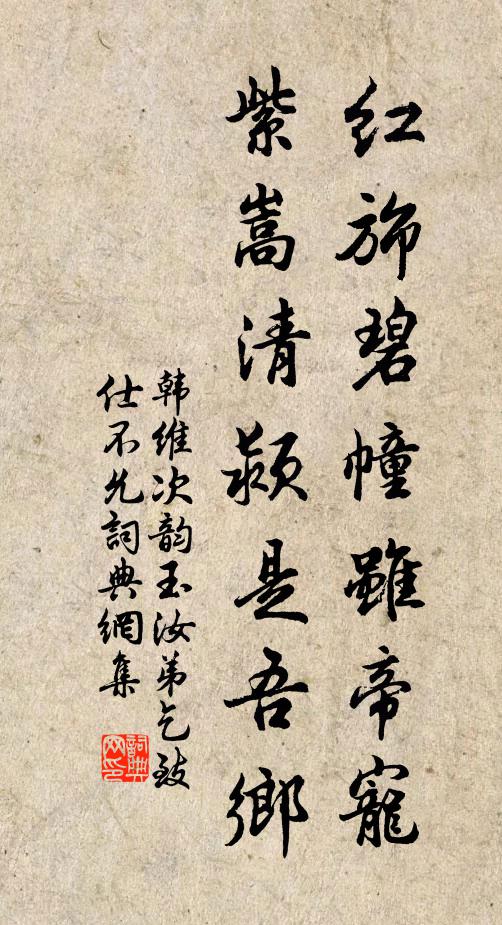 红旆碧幢雖帝寵
紫嵩清颍是吾鄉
韩维次韵玉汝弟乞致
仕不允詞典網集
詞典
网印